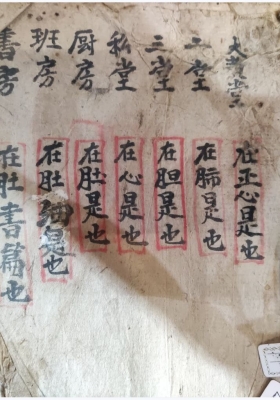 大堂堂
在正心是也
二堂
在肺是也
三堂
在胆是也
私堂
在心是也
厨房
在肚是也
班房
在肚細是也
書房
在肚書篇也